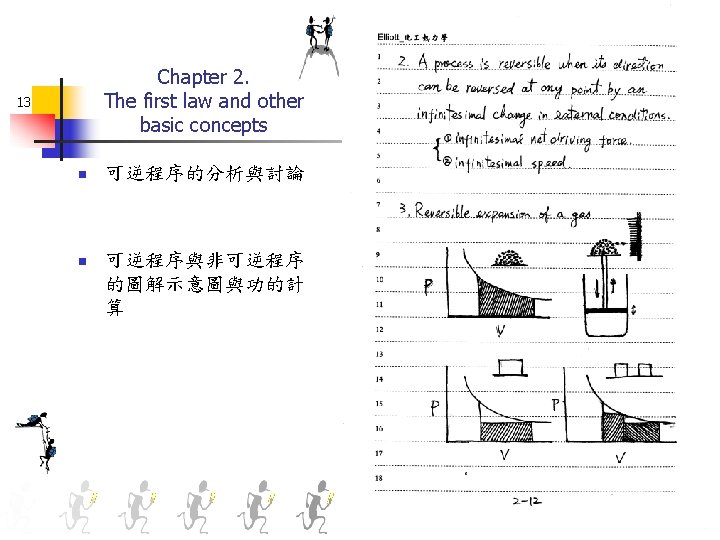 13
Chapter 2.
The first law and other
basic concepts
可逆程序的分析與討論
可逆程序與非可逆程序
的圖解示意圖與功的計
算
Elliott_化工熱力學
1
2. A process is reversible when its direction
2
can be reversed at any point by an
3
infinitesimal change in external conditions.
4
① infinitesimal net driving force.
5
② infinitesimal speed.
6
7
3. Reversible expansion of a gas
8
9
10
P
11
12
V
13
14
15
P
P
16
17
V
V
18
2-12